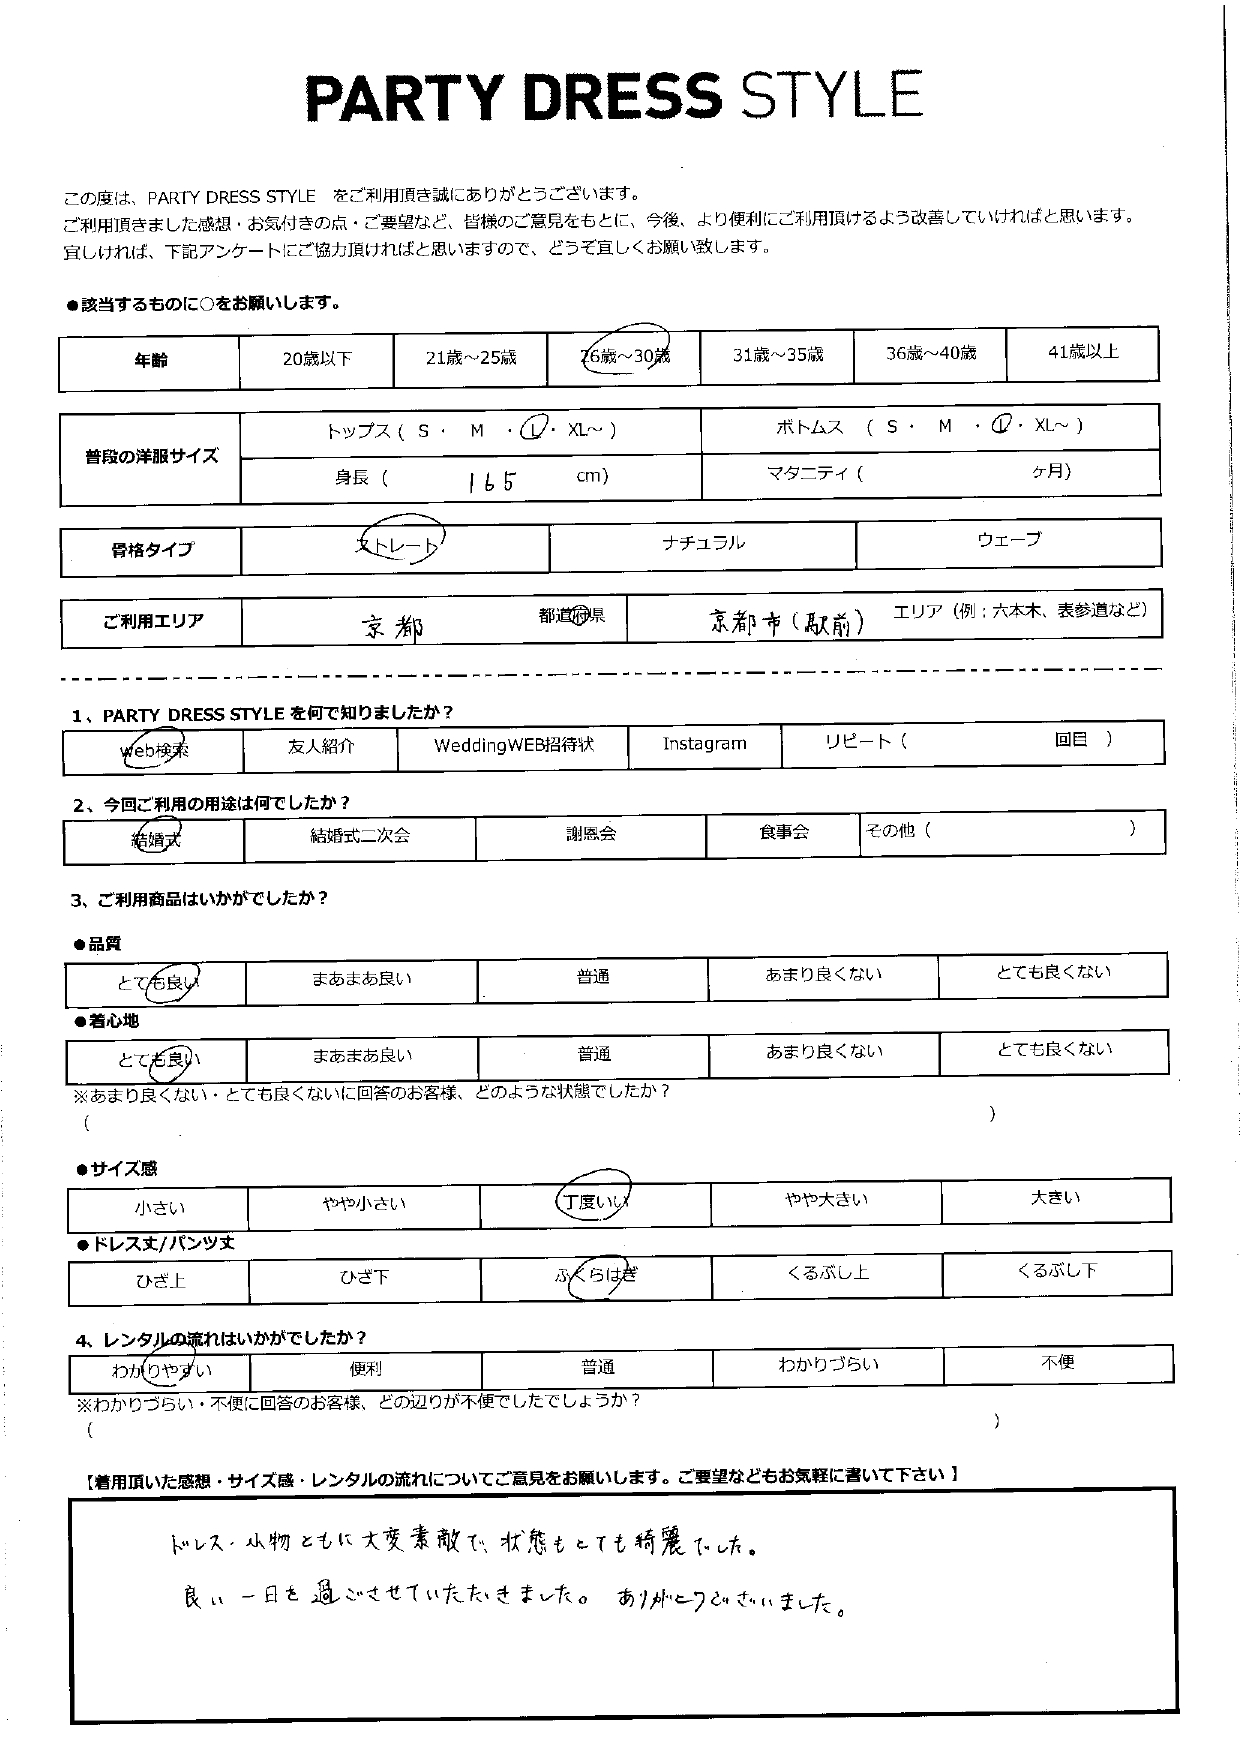 PARTY DRESS STYLE
この度は、PARTY DRESS STYLE をご利用頂き誠にありがとうございます。
ご利用頂きました感想・お気付きの点・ご要望など、皆様のご意見をもとに、今後、より便利にご利用頂けるよう改善していければと思います。
宜しければ、下記アンケートにご協力頂ければと思いますので、どうぞ宜しくお願い致します。
●該当するものに○をお願いします。
年齢 20歳以下 21歳～25歳 26歳～30歳 31歳～35歳 36歳～40歳 41歳以上
普段の洋服サイズ トップス ( S ・ M ・ L ・ XL～ ) ボトムス ( S ・ M ・ L ・ XL～ )
身長 ( 165 cm) マタニティ ( ヶ月)
骨格タイプ ストレート ナチュラル ウェーブ
ご利用エリア 京都 都道府県 京都市(駅前) エリア（例；六本木、表参道など）
1、PARTY DRESS STYLE を何で知りましたか？
Web検索 友人紹介 WeddingWEB招待状 Instagram リピート ( 回目 )
2、今回ご利用の用途は何でしたか？
結婚式 結婚式二次会 謝恩会 食事会 その他 ( )
3、ご利用商品はいかがでしたか？
●品質
とても良い まあまあ良い 普通 あまり良くない とても良くない
●着心地
とても良い まあまあ良い 普通 あまり良くない とても良くない
※あまり良くない・とても良くないに回答のお客様、どのような状態でしたか？
( )
●サイズ感
小さい やや小さい 丁度いい やや大きい 大きい
●ドレス丈/パンツ丈
ひざ上 ひざ下 ふくらはぎ くるぶし上 くるぶし下
4、レンタルの流れはいかがでしたか？
わかりやすい 便利 普通 わかりづらい 不便
※わかりづらい・不便に回答のお客様、どの辺りが不便でしたでしょうか？
( )
【着用頂いた感想・サイズ感・レンタルの流れについてご意見をお願いします。ご要望などもお気軽に書いて下さい】
ドレス・小物ともに大変素敵で、状態もとても綺麗でした。
良い一日を過ごさせていただきました。 ありがとうございました。